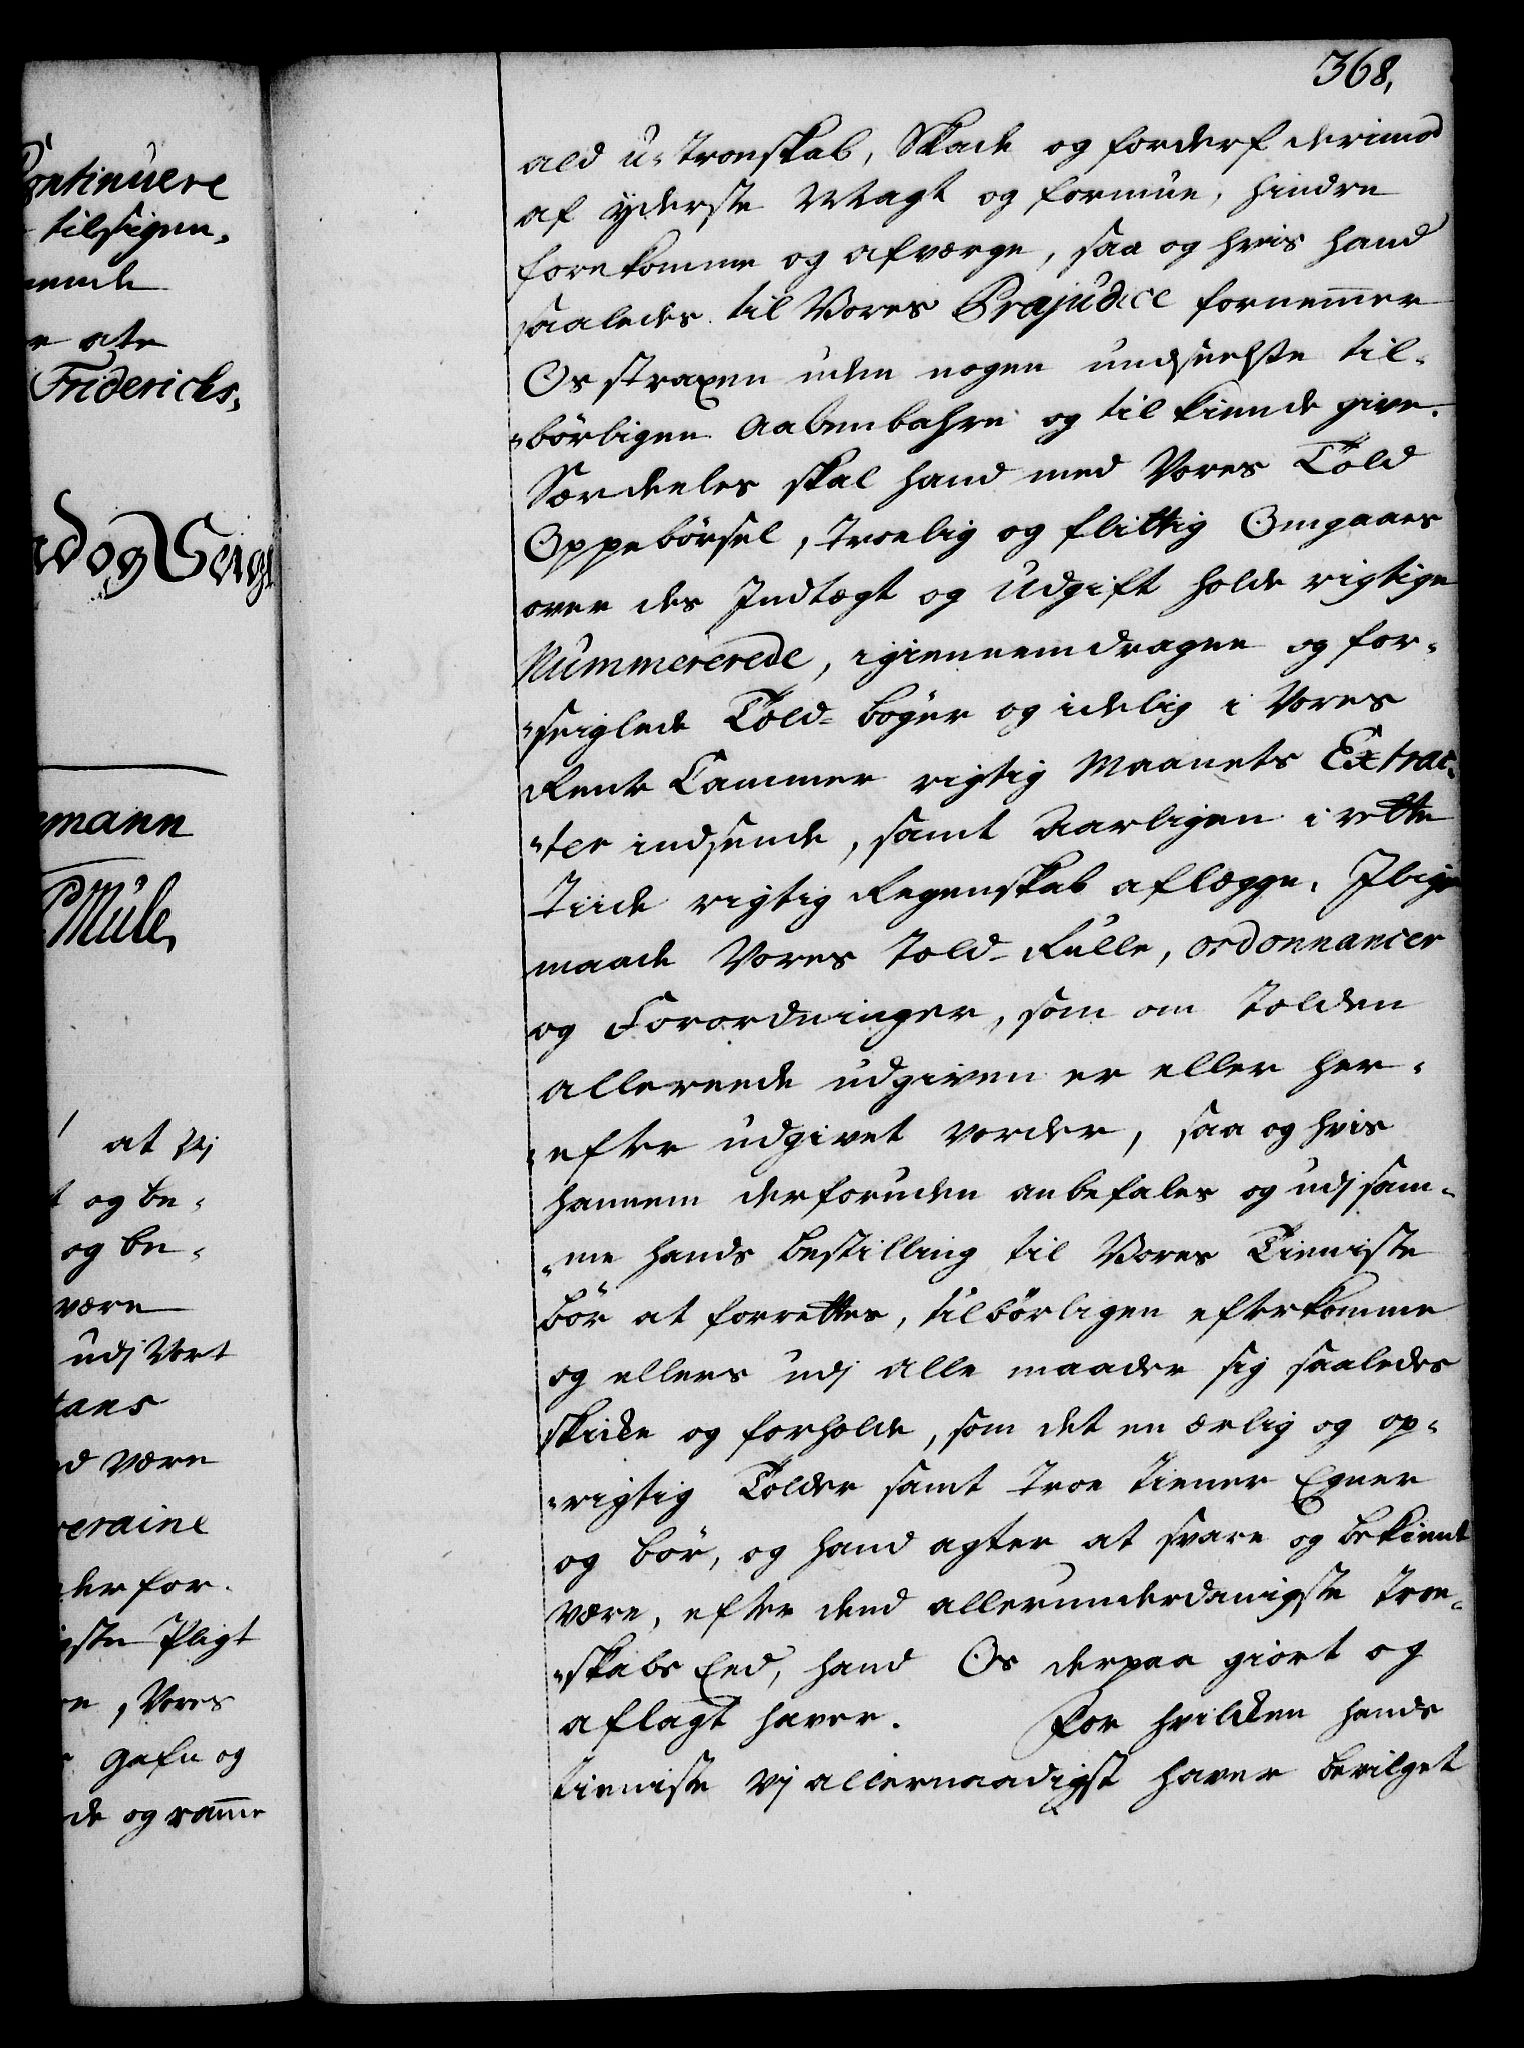 368,
ald u-troeskab, Skade og forderf derimod
af yderste Magt og formue, hindre
forekomme og afværge, saa og hvis hand
saaledes til Vores Præjudice fornemmer
Os straxen uden nogen undseelse til-
-børligen Aabenbahre og tilkiende give.
Særdeeles skal hand med Vores Told
Oppebørsel, troelig og flittig Omgaaes
over des Indtægt og Udgift holde rigtige
Nummererede, igiennemdragne og for-
-seiglede Told-bøger og idelig i Vores
Rente Cammer rigtig Maanets Extrac-
-ter indsende, samt Aarligen i rette
Tiide rigtig Regenskab aflægge. Jlige
maade Vores Told-Rulle, ordonnancer
og Forordninger, som om tolden
allereede udgiven er eller her-
-efter udgivet vorder, saa og hvis
hannem derforuden anbefales og udj sam-
-me hands bestilling til Vores Tieniste
bør at forrettes, tilbørligen efterkomme
og ellers udj alle maader sig saaledes
skicke og forholde, som det en ærlig og op-
-rigtig Tolder samt troe tiener Egner
og bør, og hand agter at svare og bekiendt
være, efter dend allerunderdanigste troe-
-skabs Eed, hand Os derpaa giort og
aflagt haver. For hvilcken hands
tieniste Vj allernaadigst haver bevilget
Continuere
tilsigen,
ate
Friderichs,
og Seigl
mann
Mule,
at Vj
og be-
og be-
være
udj Vort
være
derfor-
Pligt
, Vores
gafn og
de og ramme